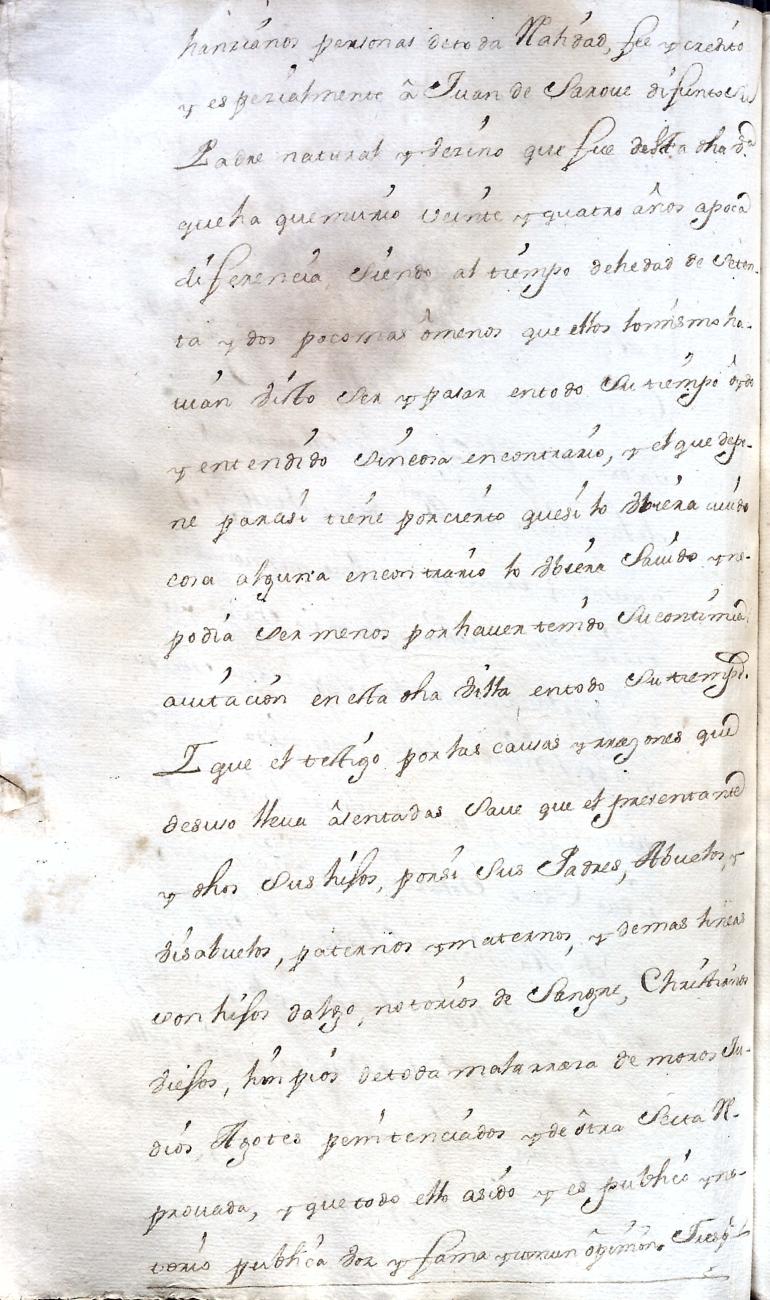 hanzianos personas detoda Rahdad, fee y credito
y espezialmente â Juan de Saroue difunto su
Padre natural y vezino que fue desta dha Va
queha quemurio veinte y quatro años apoca
diferencia, siendo al tiempo dehedad de seten-
ta y dos pocomas ômenos que ellos lomismo ha-
uian visto ser y pasar entodo su tiempo ôydo
y entendido sincosa encontrario, y el que depo-
ne parasi tiene porcierto quesi lo vbiera auido
cosa alguna encontrario lo vbiera sauido y no-
podia ser menos porhauer tenido su continua
auitacion enesta dha Villa entodo su tiempo.
I que el testigo por las causas y rrazones que
desuso lleua âsentadas saue que el presentante
y dhos sus hijos, porsi sus Padres, Abuelos, y
visabuelos, paternos y maternos, y demas lineas
son hijos dalgo, notorios de Sangre, Christianos
viejos, limpios detoda malarraza de moros Ju-
dios, Agotes penitenciados y de ôtra Secta R-
prouada, y que todo ello asido y es publico y no-
torio publica voz y fama y comun ôpinion.